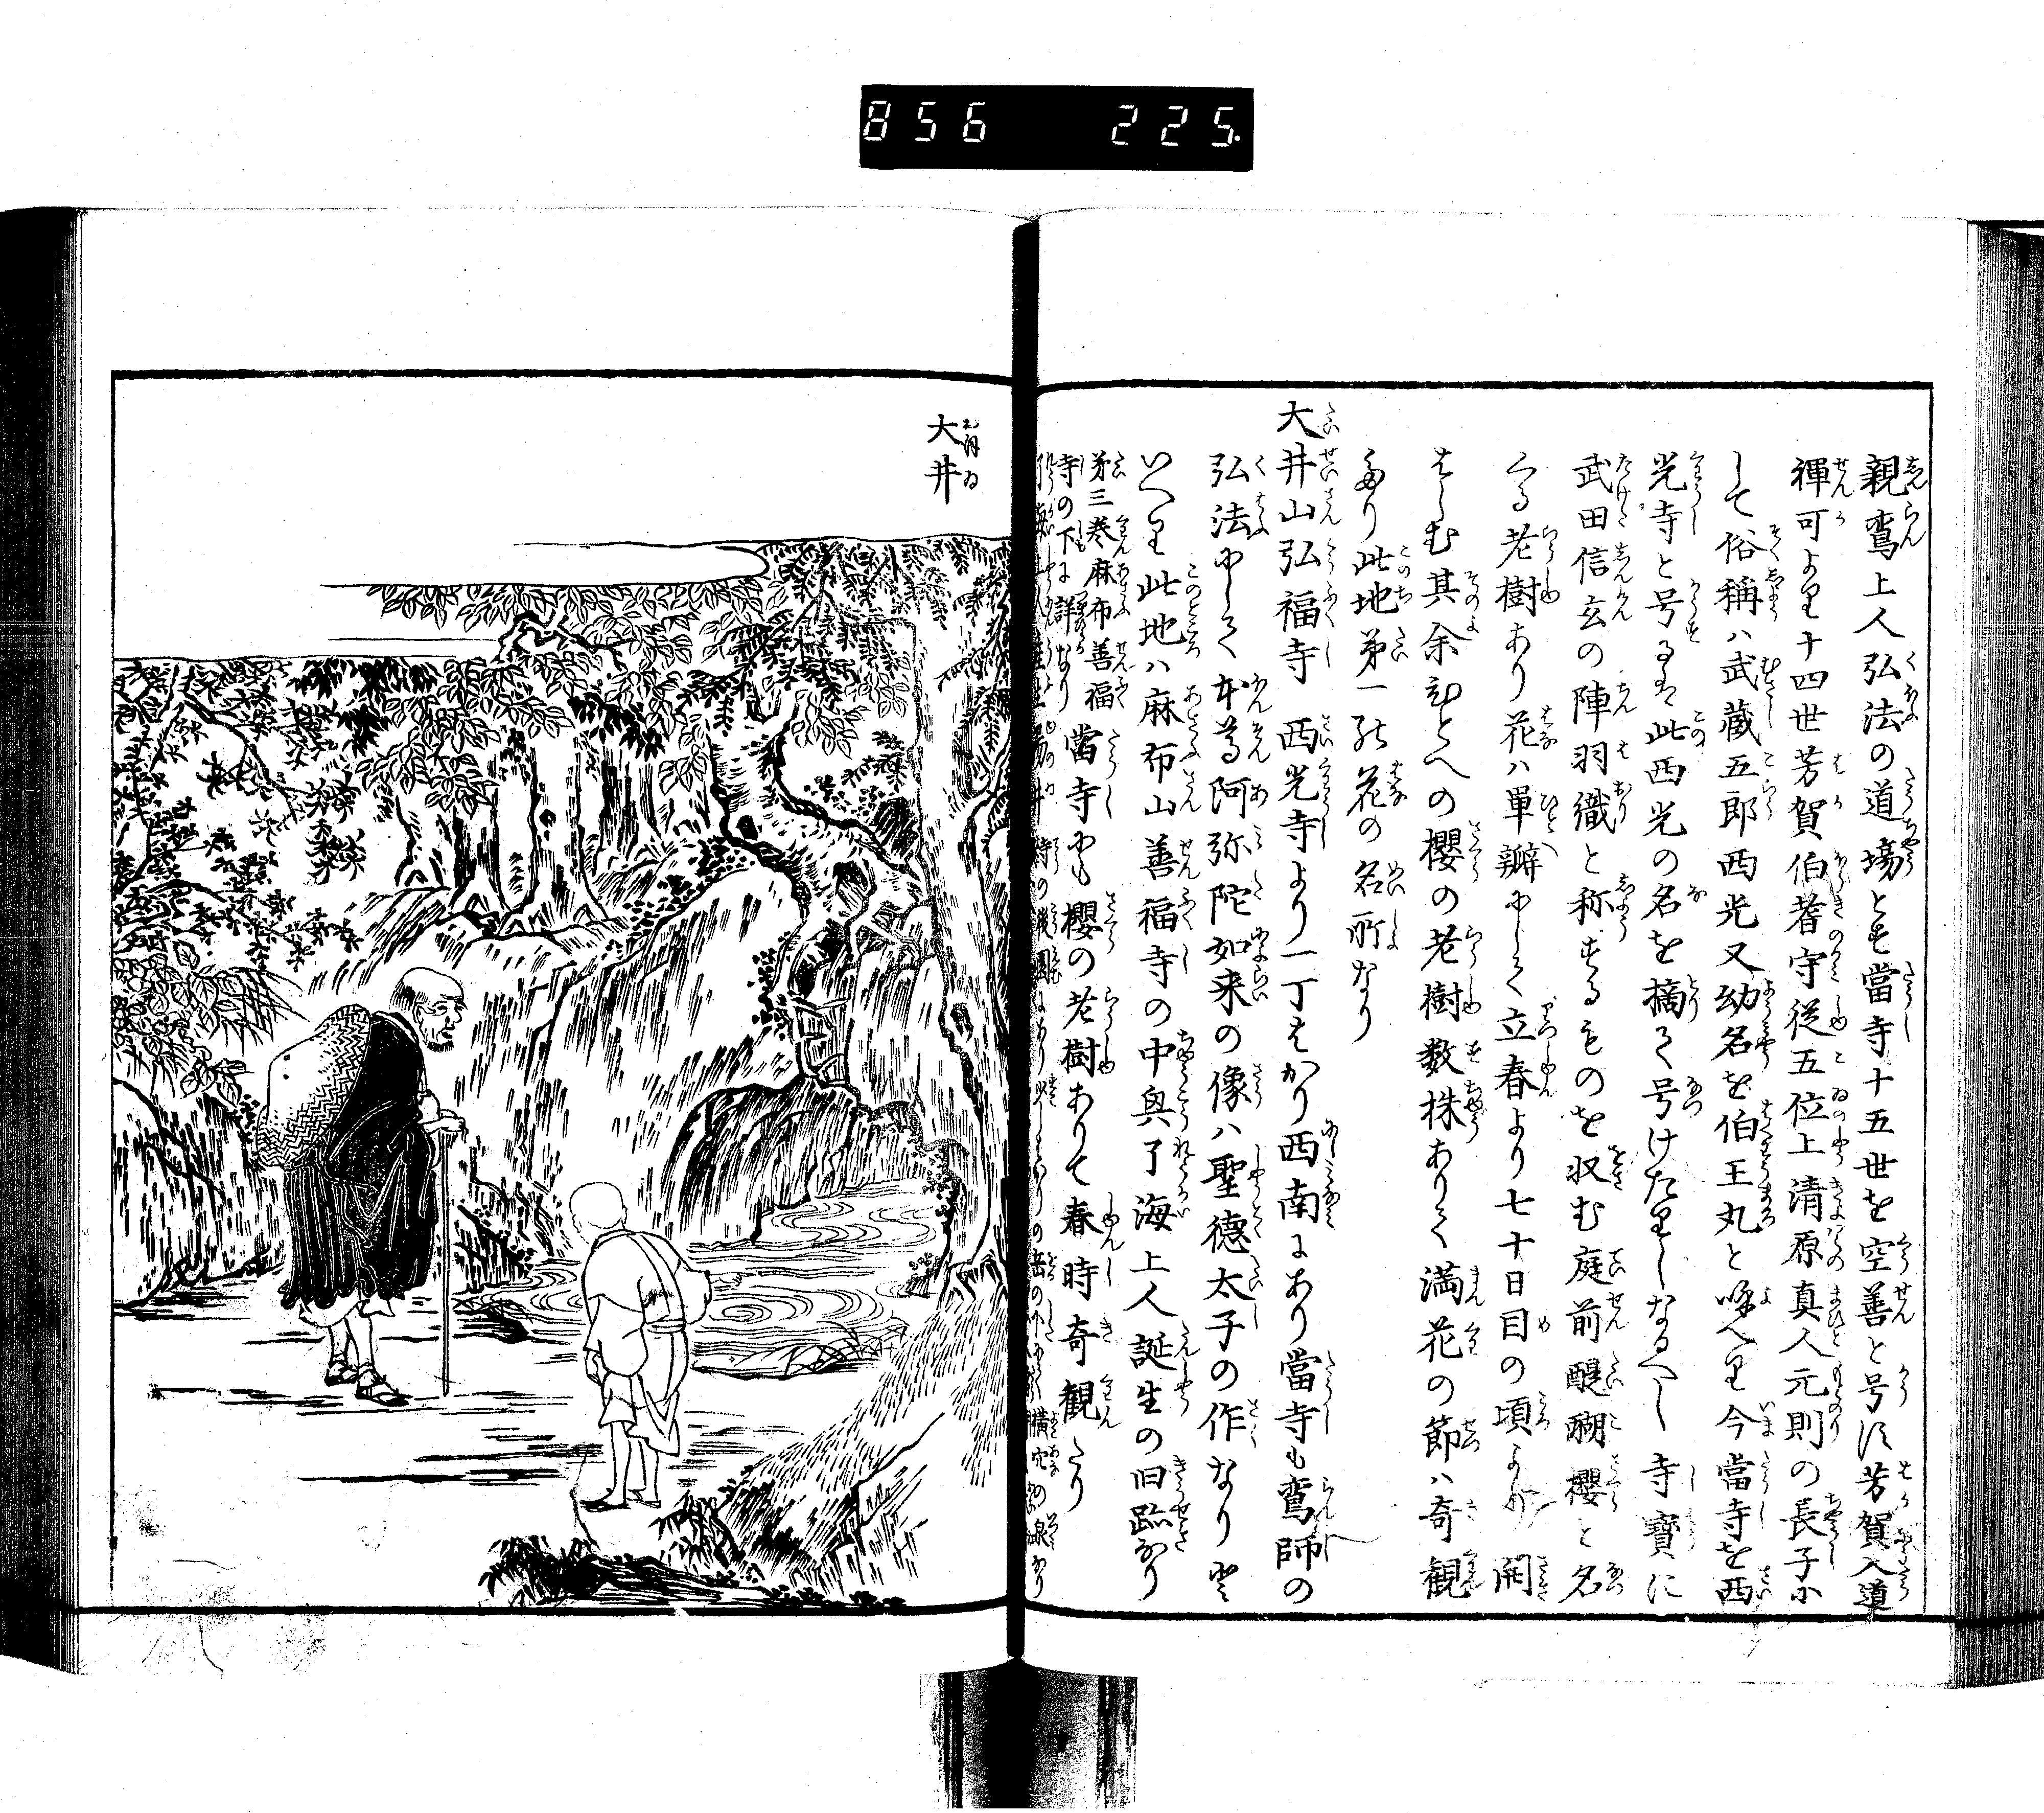 856 225
親鸞上人弘法の道場とす當寺十五世を空善と号す芳賀入道
禪可より十四世芳賀伯耆守従五位上清原真人元則の長子に
して俗稱ハ武蔵五郎西光又幼名を伯王丸と唤へり今當寺を西
光寺と号るは此西光の名を摘て号けたりしなるへし寺寶に
武田信玄の陣羽織と称するものを収む庭前醍醐櫻と名
くる老樹あり花ハ單瓣にして立春より七十日目の頃より開
はしむ其余ひとへの櫻の老樹数株ありて満花の節ハ奇観
たり此地第一の花の名所なり
大井山弘福寺 西光寺より一丁はかり西南にあり當寺も鸞師の
弘法にして本尊阿弥陀如来の像ハ聖徳太子の作なりと
いへり此地ハ麻布山善福寺の中興了海上人誕生の旧跡なり
第三巻麻布善福
寺の下に詳なり
當寺にも櫻の老樹ありて春時奇観たり
大井